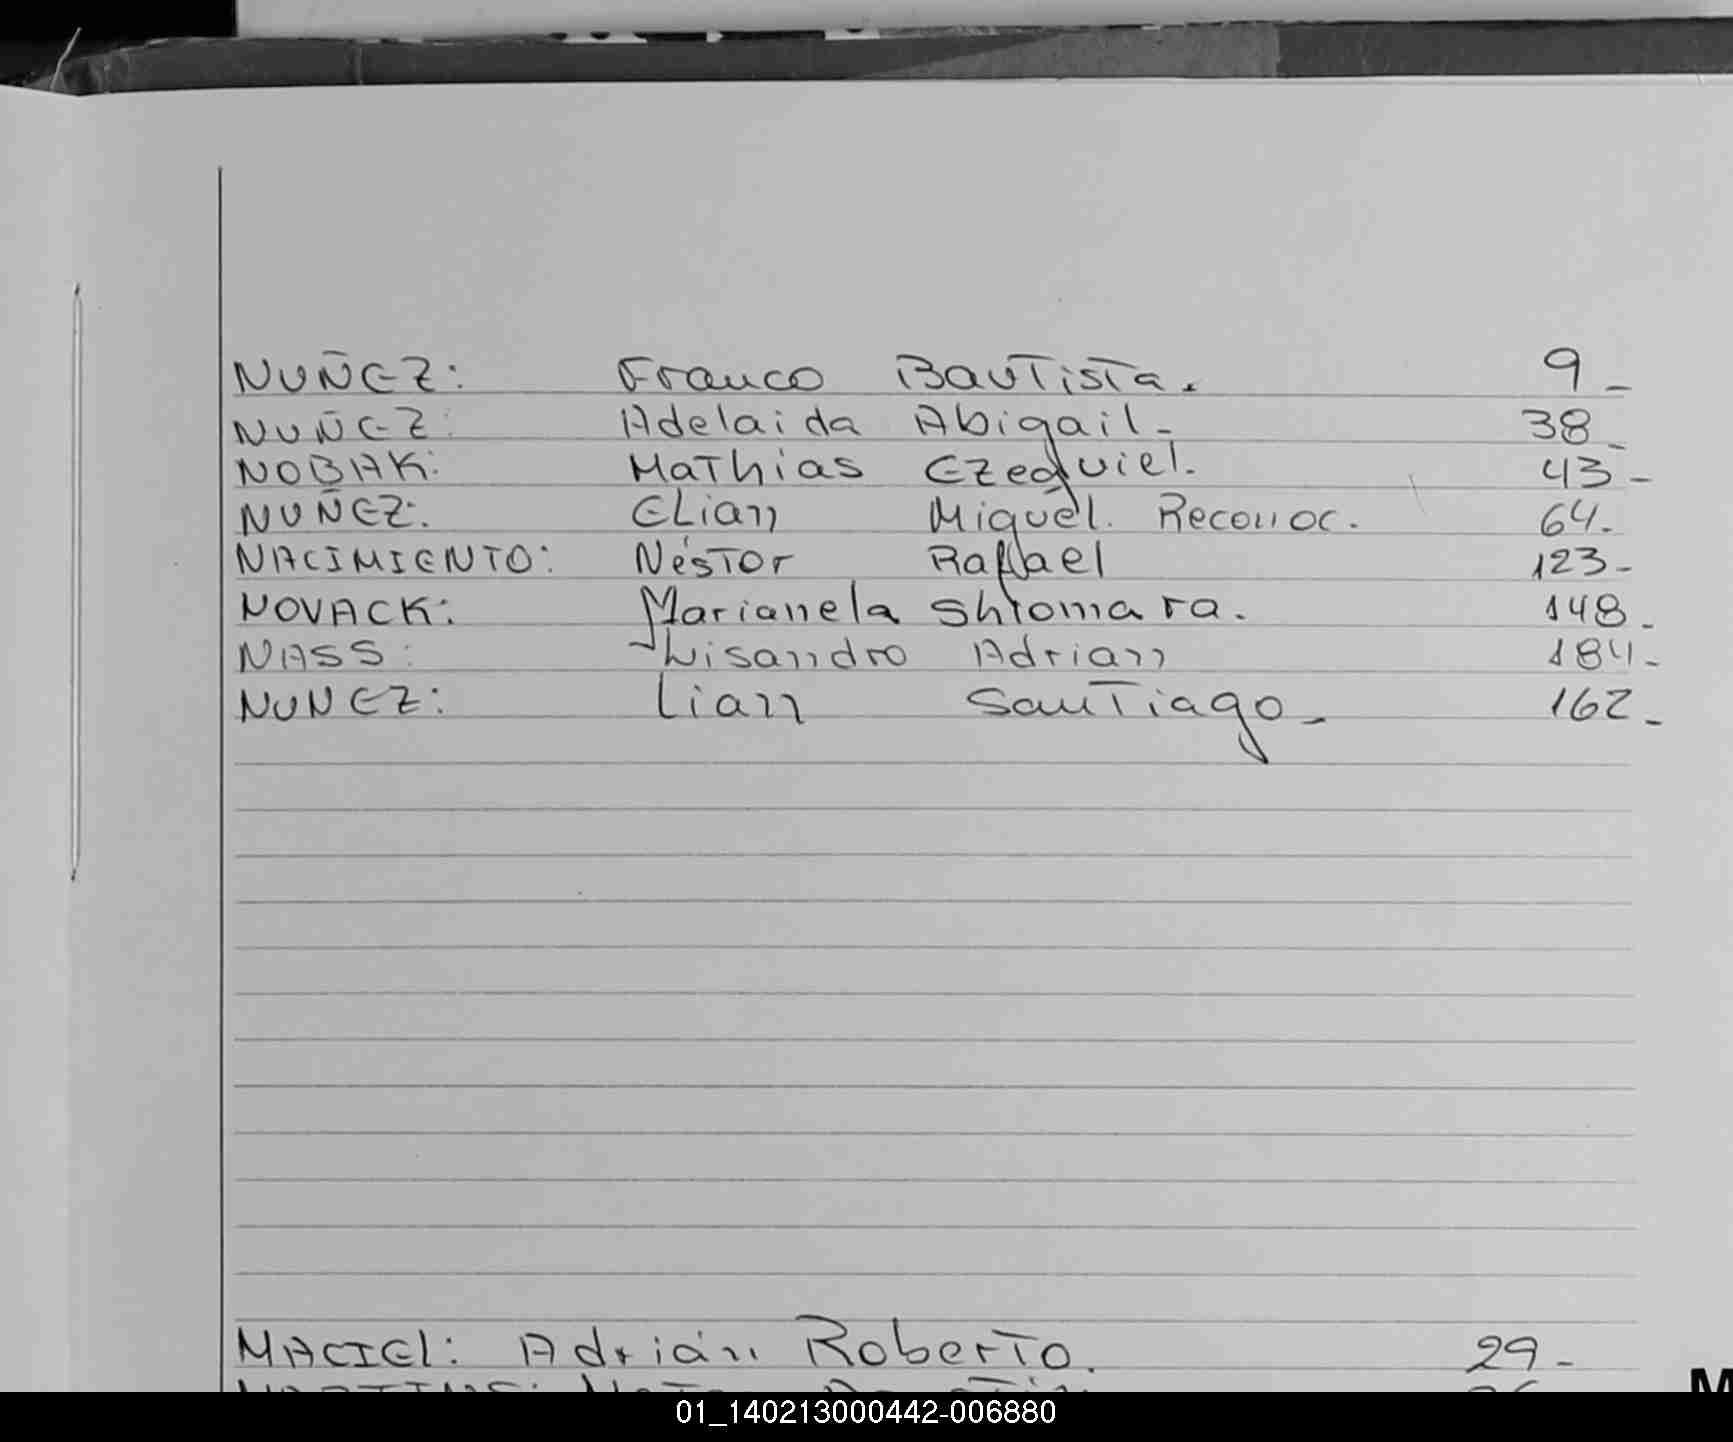 NUÑEZ: Franco Bautista. 9-
NUÑEZ: Adelaida Abigail- 38-
NOBAK: Mathias Ezequiel. 43-
NUÑEZ: Elian Miguel. Reconoc. 64-
NACIMIENTO: Néstor Rafael 123-
NOVACK: Marianela Shiomara. 148-
NASS: Lisandro Adrian 184-
NUNEZ: Lian Santiago- 162-
MACIEL: Adrián Roberto. 29-
M
01_140213000442-006880